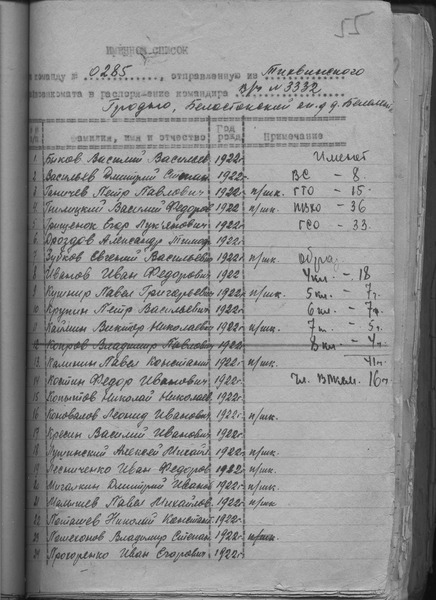 55
ИМЕННОЙ СПИСОК
команду № 0285, отправленную из Тихвинского
военкомата в распоряжение командира в/ч № 3332
Гродно, Белостокский
фамилия, имя и отчество Год рожд. Примечание
1 Быков Василий Васильев 1922г. Имеют
2 Васильев Дмитрий Степан 1922г. ВС - 8
3 Павлович 1922г. п/шк. ГТО - 15
4 Василий Федоров 1922 п/шк. ПВХО - 36
5 Грищенок Егор Лукьянович 1922г. ГСО - 33
6 Дроздов Александр 1922г.
7 Зубков Евгений Васильевич 1922г. п/шк. образ
8 Иванов Иван Федорович 1922г. 4 кл. - 18
9 Кушнир Павел Григорьевич 1922г. п/шк. 5 кл. - 7ч.
10 Крупин Петр Васильевич 1922г. 6 кл. - 7ч.
11 Виктор Николаевич 1922г. п/шк. 7 кл. - 5ч.
12 Владимир Павлович 1922г. 8 кл. - 4ч.
13 Калинин Павел Констант 1922г. п/шк. 41ч.
14 Федор Иванович 1922г. Чл. ВЛКСМ. 16ч.
15 Копытов Николай Николаев 1922г.
16 Коновалов Леонид Иванович 1922г. п/шк.
17 Кресин Василий Иванович 1922г.
18 Алексей Михайл 1922г. п/шк.
19 Лесниченко Иван Федоров 1922г. п/шк.
20 Дмитрий Иванов 1922г. п/шк.
21 Малышев Павел Михайлов 1922г. п/шк.
22 Поташев Николай Констант 1922г.
23 Владимир Степан 1922г. п/шк.
24 Прохоренко Иван Егорович 1922г.